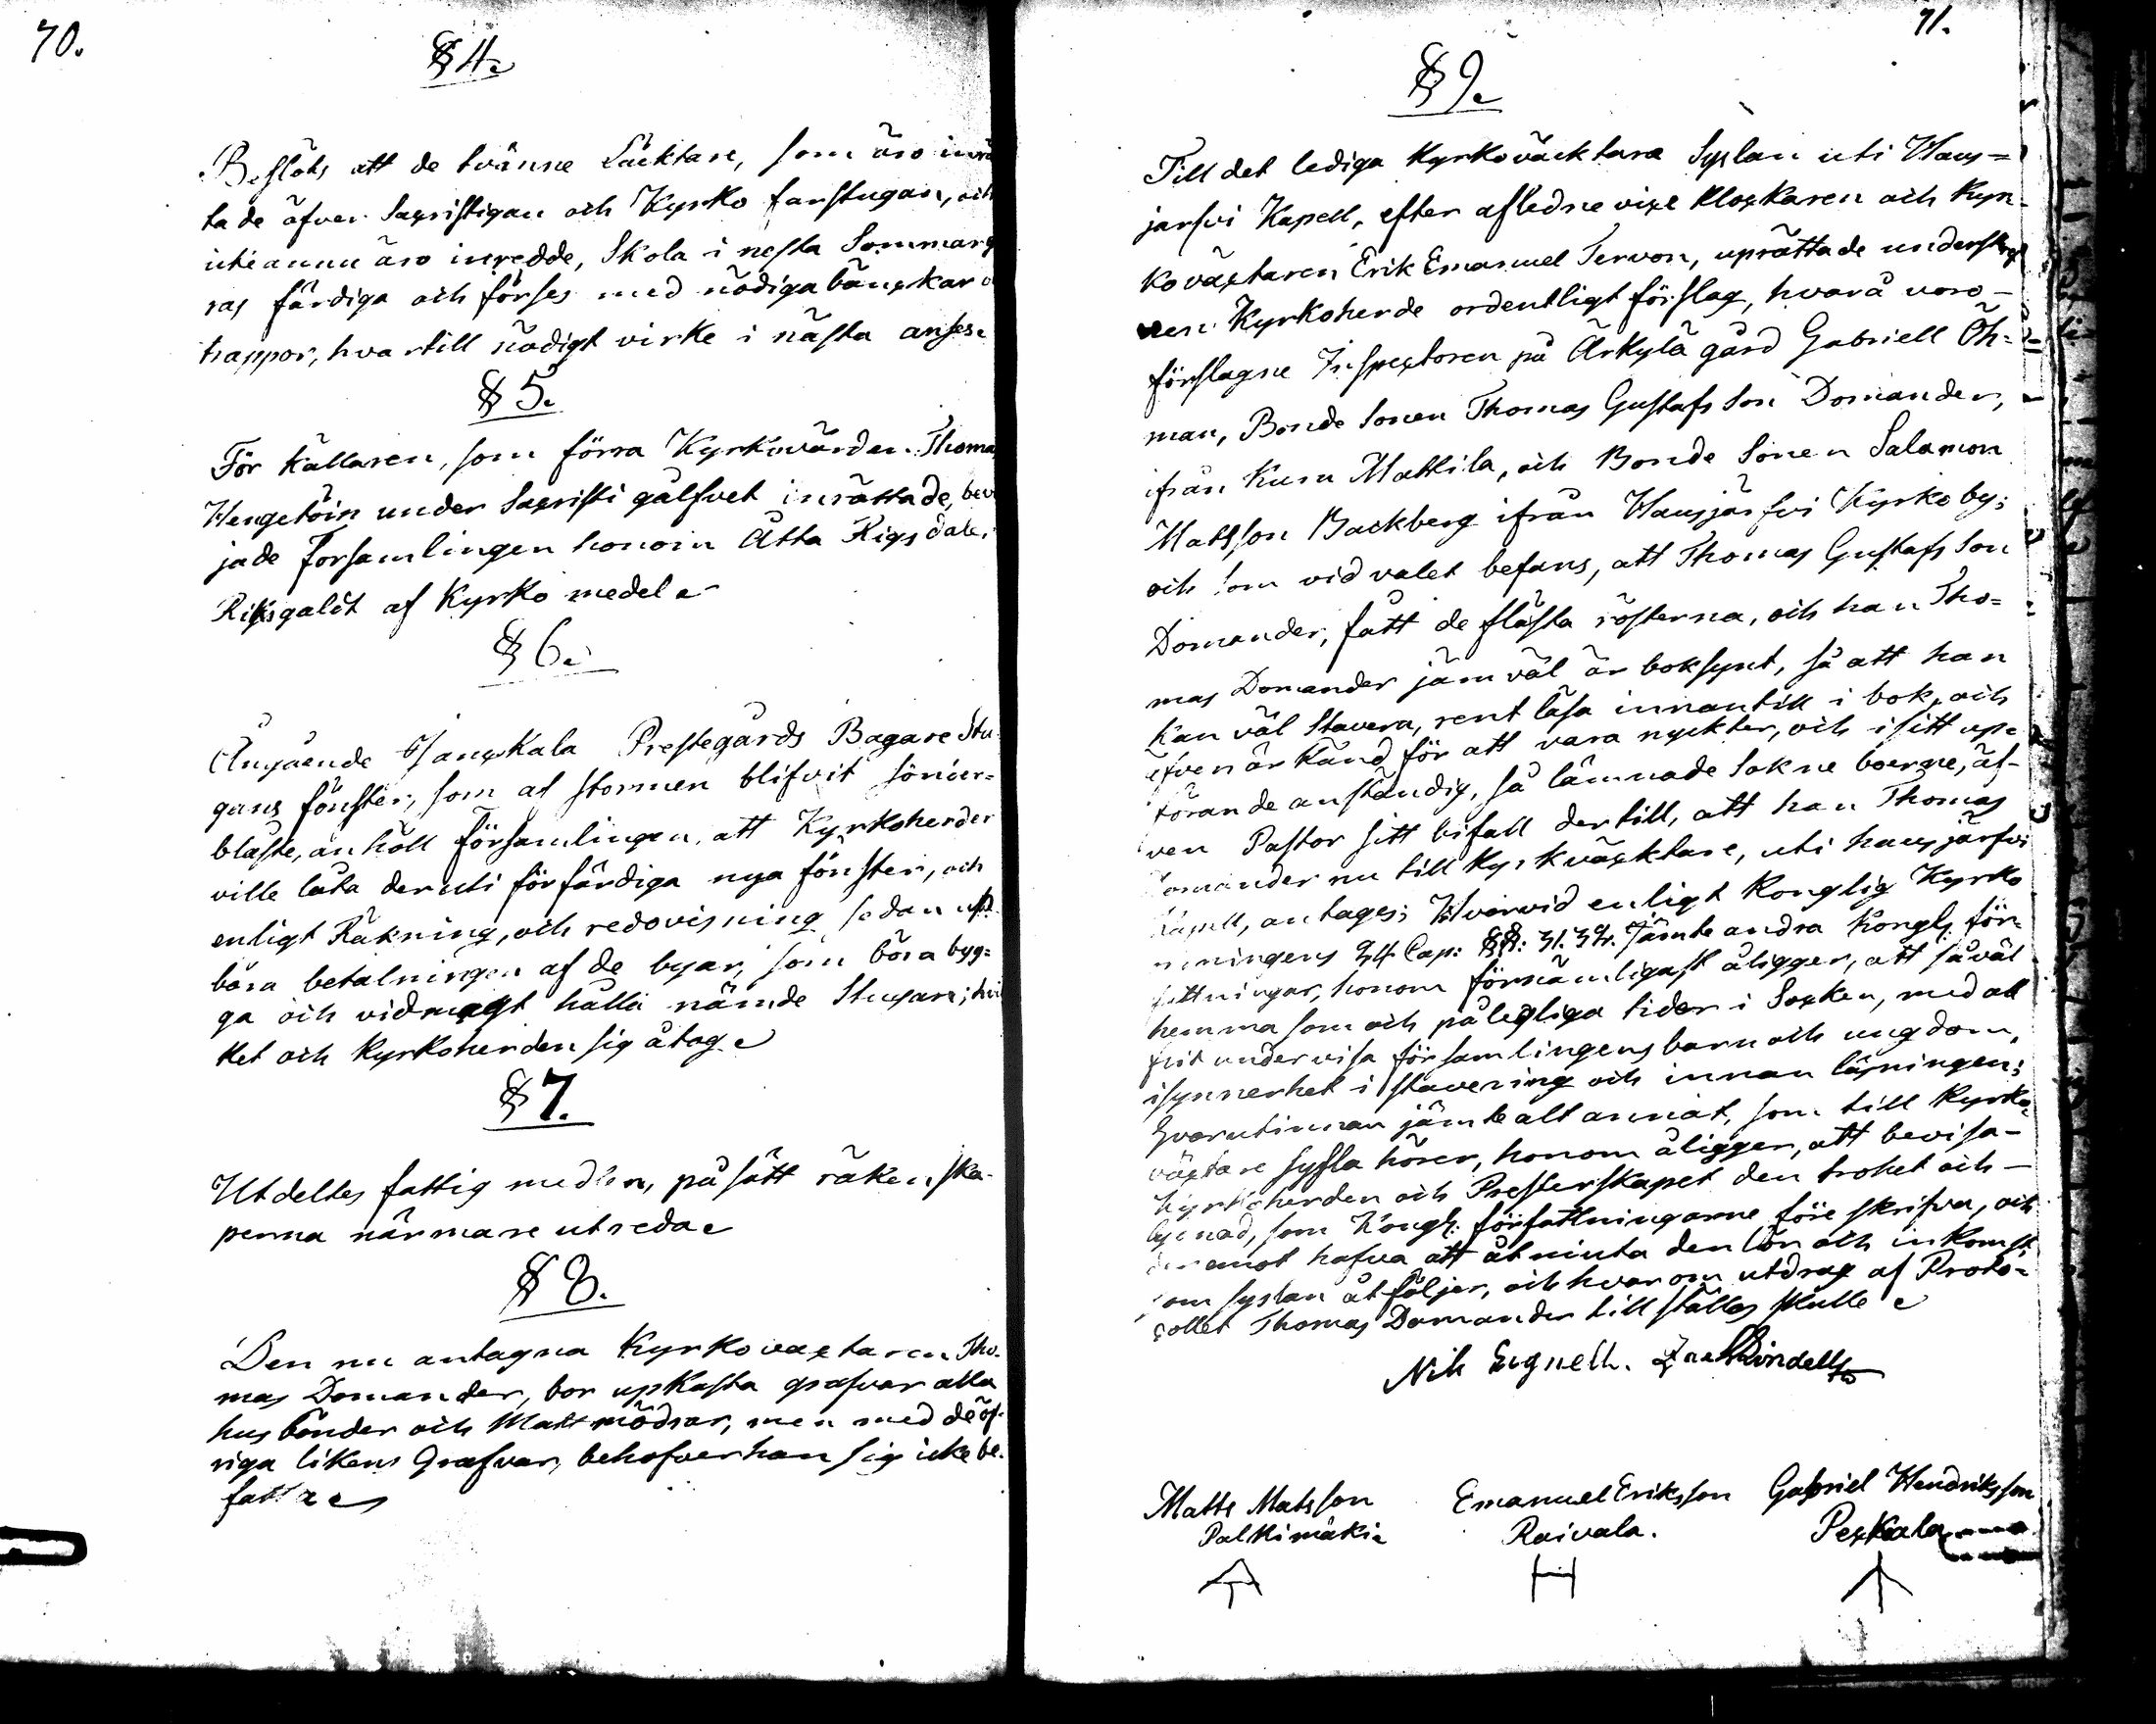 70.
§ 4.
Beslöts att de tvänne Läcktare, som äro inrä
tade öfver Sacristigan och Kyrko farstugan, och
icke ännu äro inredde, Skola i nesta Sommar g
ras färdiga och förses med nödiga bänckar o
trappor, hvartill nödigt virke i nästa anses.
§ 5.
För källaren, som förra Kyrkovärden Thomas
Hengetöin under Sacristi gålfvet inrättade, bevi
jade Forsamlingen honom Åtta Rigsdaler
Riksgäldt af Kyrko medel.
§ 6.
Angående Janckala Prestegårds Bagare Stu
gans fönster, som af stormen blifvit sönder=
blåste, anhöll församlingen, att Kyrkoherden
ville låta deruti förfärdiga nya fönster, och
enligt Räkning, och redovisning sedan upp
bära betalningen af de byar, som böra byg=
ga och vidmagt hålla nämde Stugan; hvil
ket och Kyrkoherden sig åtog.
§ 7.
Utdeltes fattig medlen, på sätt räkenska-
perna närmare utreda.
§ 8.
Den nu antagna Kyrkovactaren Tho-
mas Domander, bör upkasta grafvar alla
husbönder och Matmödrar, men med de öf-
riga likens Grafvar, behöfver han sig icke be-
fatta.
71.
§ 9.
Till det lediga Kyrkoväcktare Syslan uti Haus=
jarfvi Kapell, efter afledne vice Klockaren och Kyr-
kovächtaren Erik Emanuel Tervon, uprättade underskref
ven Kyrkoherde ordentligt förslag, hvarå voro-
förslagne Inspectoren på Ärkylä gård Gabriell Öh=
man, Bonde Sonen Thomas Gustafs Son Domander,
ifrån Kuru Mattila, och Bonde Sonen Salamon
Matsson Backberg ifrån Hausjärfvi Kyrko by;
och som vid valet befans, att Thomas Gustafs Son
Domander, fått de flästa rösterna, och han Tho=
mas Domander jämväl är boksynt, så att han
kan väl Stavera, rent läsa innantill i bok, och
efven är känd för att vara nyckter, och i sitt up=
förande anständig, så lämnade Sokne boerne, äf-
ven Pastor sitt bifall dertill, att han Thomas
Domander nu till Kyrkväcktare, uti hausjärfvi
Kapell, antages; Hvarvid enligt Konglig Kyrko
ningens 24 Cap: §§: 31. 32. Jämte andra Kongl: för-
fattningar, honom förnämligast åligger, att såväl
hemma som och på legliga tider i Socken, med all
flit undervisa församlingens barn och ungdom,
isynnerhet i stavering och innan läsningen;
Hvarutinnan jämte alt annat, som till Kyrko
väctare sysla hörer, honom åligger, att bevisa-
Kyrkoherden och Presterskapet den trohet och-
lydnad, som Kongl: författningarne före skrifva, och
deremot hafva att åtniuta den lön och inkomst
som syslan åtföljer, och hvarom utdrag af Proto=
collet Thomas Domander till ställas skulle.
Nils Eignell.
Matts Matsson Emanuel Eriksson Gabriel Hendriksson
Palkimäki Raivala. Peckala